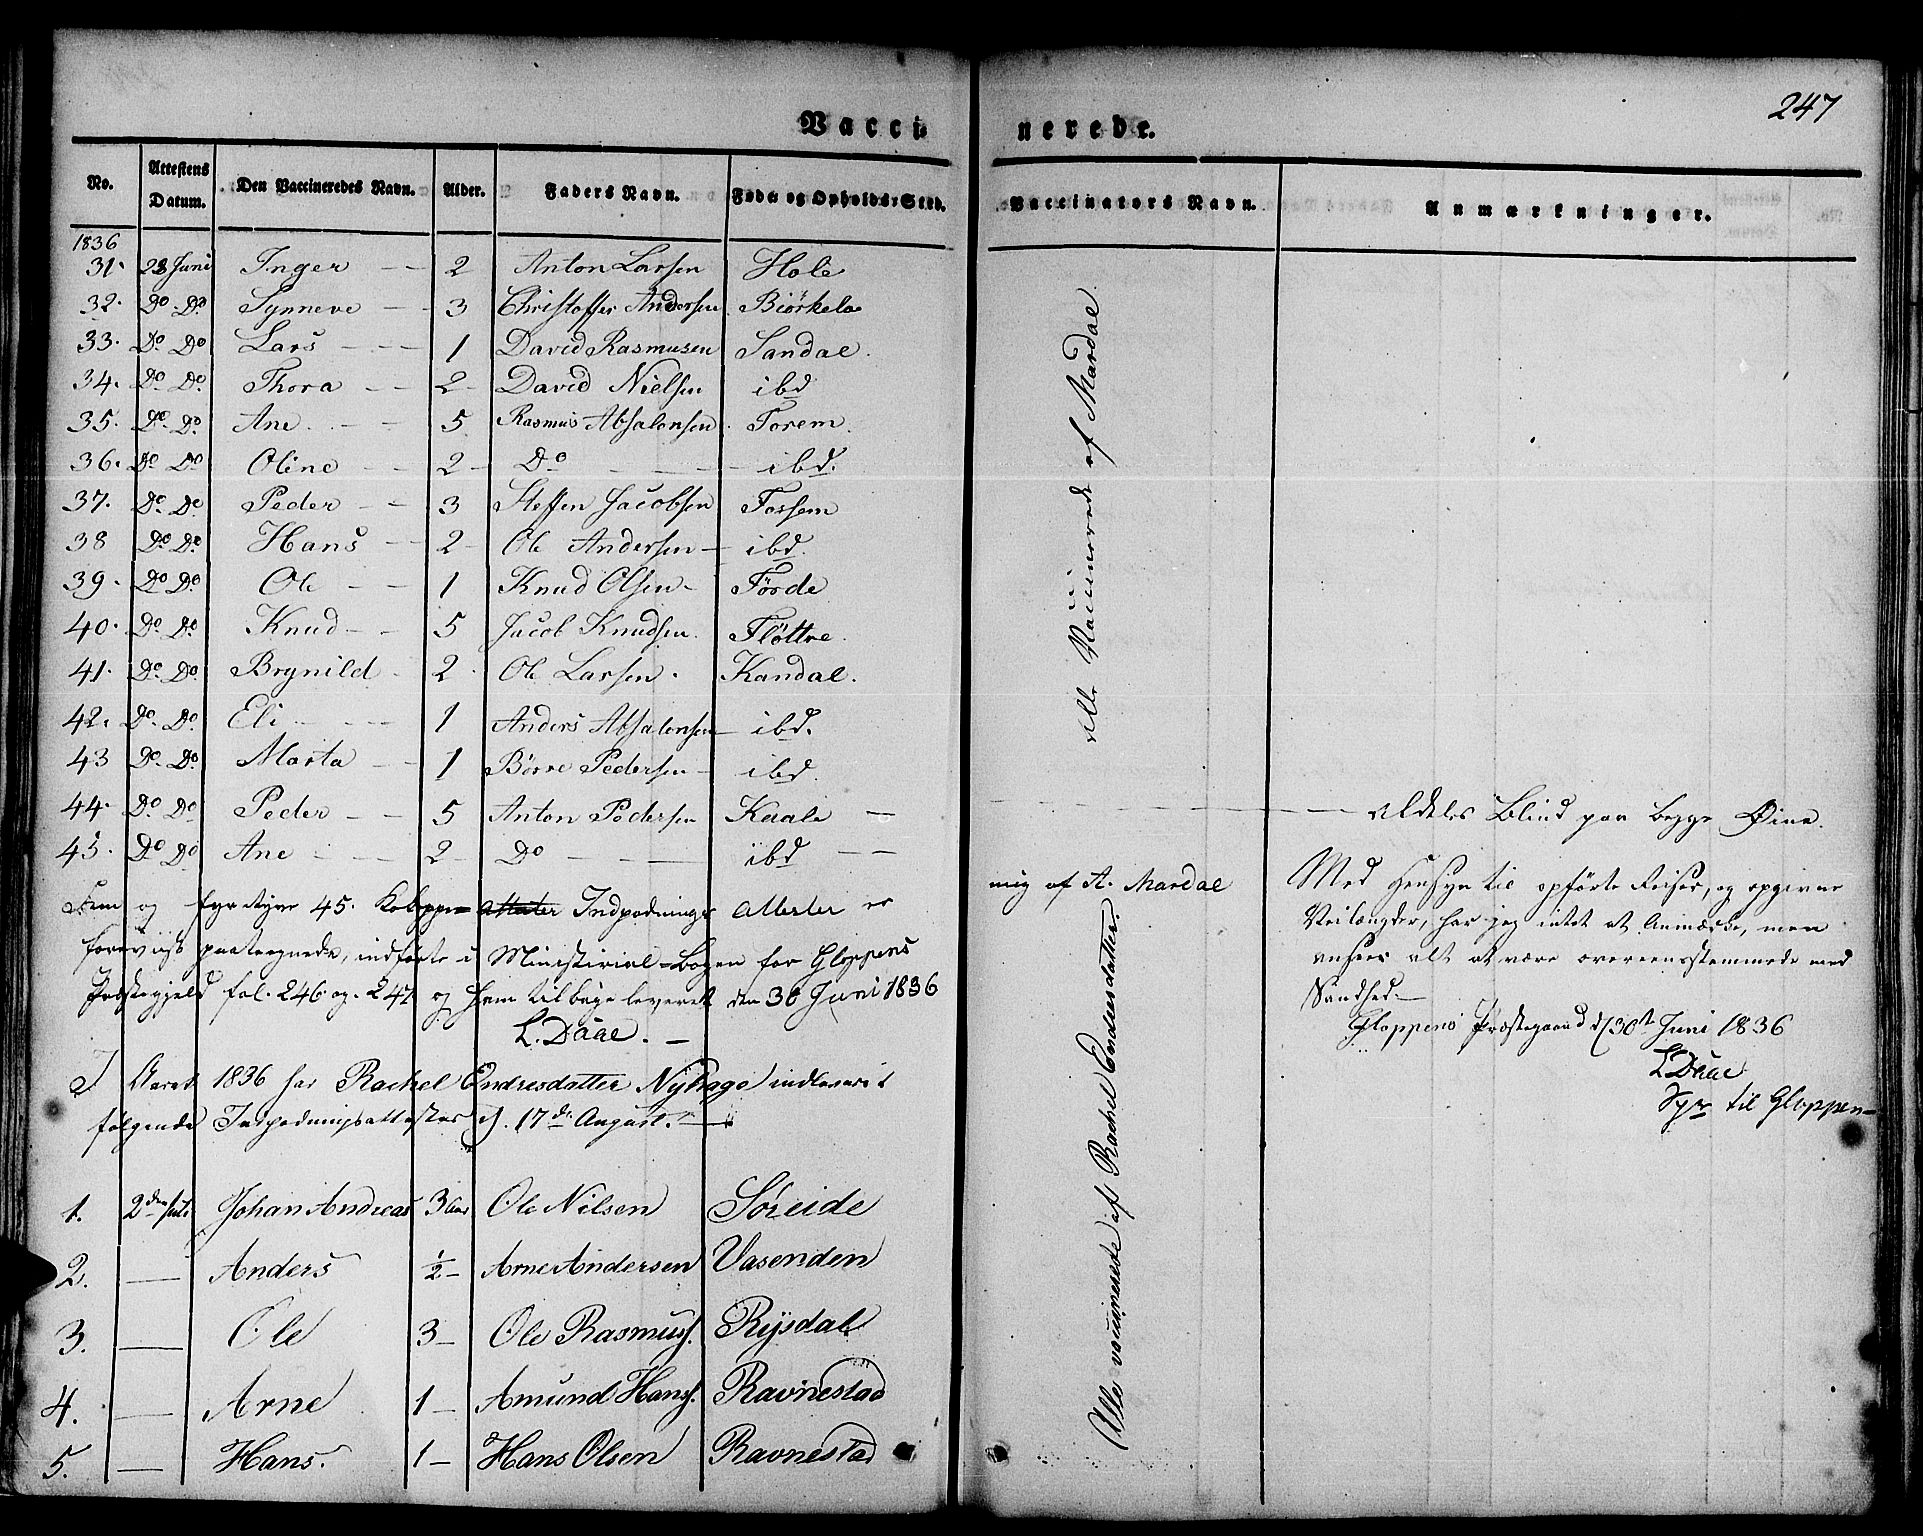 247
Vaccinerede.
No. Attestens Datum. Den Vaccineredes Navn. Alder. Faders Navn. Føde og Opholds-Sted. Vaccinators Navn. Anmærkninger.
1836
31. 28 Juni Inger — — 2 Anton Larsen Hole
32. Do Do Synneve — — 3 Christoffer Andersen Biörkelo
33. Do Do Lars — — 1 David Rasmusen Sandal.
34. Do Do Thora — — 2 David Nielsen ibd
35. Do Do Ane — — 5 Rasmus Absalonsen Forem.
36. Do Do Oline — — 2 Do — — ibd.
37. Do Do Peder — — 3 Steffen Jacobsen Fossem
38 Do Do Hans — — 2 Ole Andersen — ibd.
39. Do Do Ole — — 1 Knud Olsen — Förde
40. Do Do Knud — — 5 Jacob Knudsen. Flöttre.
41. Do Do Brynild 2 Ole Larsen. Kandal.
42. Do Do Eli — — 1 Anders Absalonsen ibd.
43 Do Do Marta — — 1 Börre Pedersen — ibd.
44. Do Do Peder — — 5 Anton Pedersen Kaale —
Aldeles Blind paa begge Øine.
45. Do Do Ane — — 2 Do — — ibd — —
alle Vaccinerede af Mardal
Fem og fyrretyve 45. Indpodnings Attester er mig af A. Mardal
foreviist paategnede, indførte i Ministerial-Bogen for Gloppens
Præstegjeld fol. 246 og 247 og ham tilbageleveret den 30 Juni 1836
L. Daae. —
Med Hensyn til opførte Reiser, og opgivne
Veilængder, har jeg intet at Anmærke, men
ansees alt at være overeensstemmende med
Sandhed. —
Gloppens Præstegaard d/30te Juni 1836
L Daae
Spr til Gloppen —
I Aaret 1836 har Rachel Endresdatter Nyhage indleveret
følgende Indpodningsattester d. 17de August. —
1. 2den Juli Johan Andreas 3 Aar Ole Nilsen Söreide
2. — Anders ½ — Arne Andersen Vasenden
3. — Ole 3 — Ole Rasmuss. Rysdal
4. — Arne 1 — Amund Hanss. Ravnestad
5. — Hans. 1 — Hans Olsen Ravnestad
Alle vaccinerede af Rachel Endresdatter.